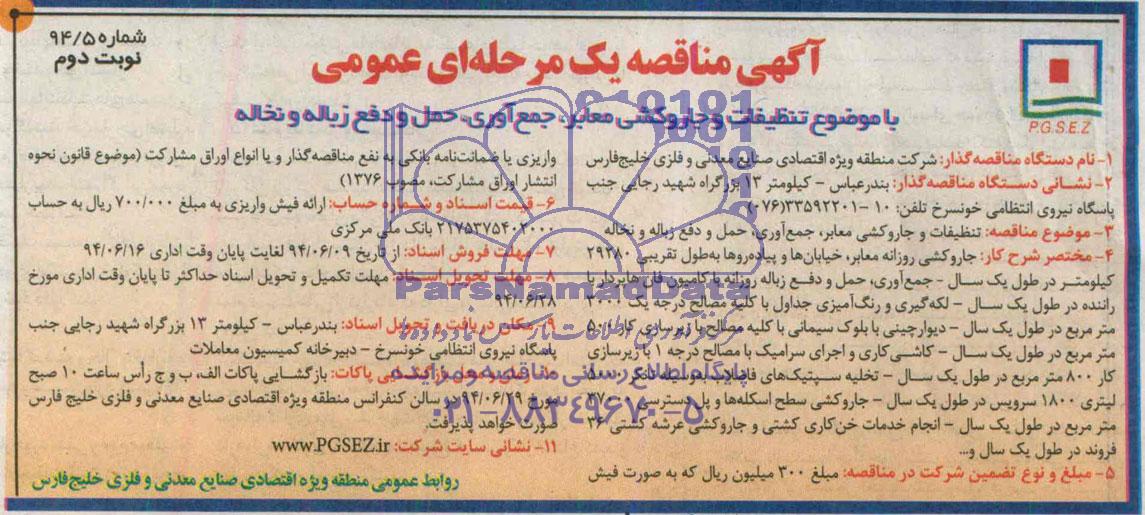 شماره ۹۴/۵
نوبت دوم
آگهی مناقصه یک مرحله‌ای عمومی
با موضوع تنظیفات و جاروکشی معابر، جمع‌آوری، حمل و دفع زباله و نخاله
P.G.S.E.Z
۱- نام دستگاه مناقصه‌گذار: شرکت منطقه ویژه اقتصادی صنایع معدنی و فلزی خلیج‌فارس
۲- نشانی دستگاه مناقصه‌گذار: بندرعباس - کیلومتر ۱۳ بزرگراه شهید رجایی جنب
پاسگاه نیروی انتظامی خونسرخ تلفن: ۱۰ -۳۳۵۹۲۲۰۱(۰۷۶)
۳- موضوع مناقصه: تنظیفات و جاروکشی معابر، جمع‌آوری، حمل و دفع زباله و نخاله
۴- مختصر شرح کار: جاروکشی روزانه معابر، خیابان‌ها و پیاده‌روها به‌طول تقریبی ۲۹۲۸۰
کیلومتر در طول یک سال - جمع‌آوری، حمل و دفع زباله روزانه با کامیون فان هایردار با
راننده در طول یک سال - لکه‌گیری و رنگ‌آمیزی جداول با کلیه مصالح درجه یک
متر مربع در طول یک سال - دیوارچینی با بلوک سیمانی با کلیه مصالح با زیرسازی کار
متر مربع در طول یک سال - کاشی‌کاری و اجرای سرامیک با مصالح درجه ۱ با زیرسازی
کار ۸۰۰ متر مربع در طول یک سال - تخلیه سپتیک‌های فاضلاب
لیتری ۱۸۰۰ سرویس در طول یک سال - جاروکشی سطح اسکله‌ها و پل دسترسی
متر مربع در طول یک سال - انجام خدمات خن‌کاری کشتی و جاروکشی عرشه کشتی ۳۶
فروند در طول یک سال و...
۵- مبلغ و نوع تضمین شرکت در مناقصه: مبلغ ۳۰۰ میلیون ریال که به صورت فیش
واریزی یا ضمانت‌نامه بانکی به نفع مناقصه‌گذار و یا انواع اوراق مشارکت (موضوع قانون نحوه
انتشار اوراق مشارکت، مصوب ۱۳۷۶)
۶- قیمت اسناد و شماره حساب: ارائه فیش واریزی به مبلغ ۷۰۰/۰۰۰ ریال به حساب
۲۱۷۵۳۷۵۴۰۲۰۰۰ بانک ملی مرکزی
۷- مهلت فروش اسناد: از تاریخ ۹۴/۰۶/۰۹ لغایت پایان وقت اداری ۹۴/۰۶/۱۶
۸- مهلت تحویل اسناد: مهلت تکمیل و تحویل اسناد حداکثر تا پایان وقت اداری مورخ
۹۴/۰۶/۲۸
۹- مکان دریافت و تحویل اسناد: بندرعباس - کیلومتر ۱۳ بزرگراه شهید رجایی جنب
پاسگاه نیروی انتظامی خونسرخ - دبیرخانه کمیسیون معاملات
۱۰- زمان و محل بازگشایی پاکات: بازگشایی پاکات الف، ب و ج رأس ساعت ۱۰ صبح
مورخ ۹۴/۰۶/۲۹ در سالن کنفرانس منطقه ویژه اقتصادی صنایع معدنی و فلزی خلیج فارس
صورت خواهد پذیرفت.
۱۱- نشانی سایت شرکت: www.PGSEZ.ir
روابط عمومی منطقه ویژه اقتصادی صنایع معدنی و فلزی خلیج‌فارس
ParsNamadData
پایگاه اطلاع رسانی مناقصه و مزایده
۰۲۱-۸۸۳۴۹۶۷۰-۵